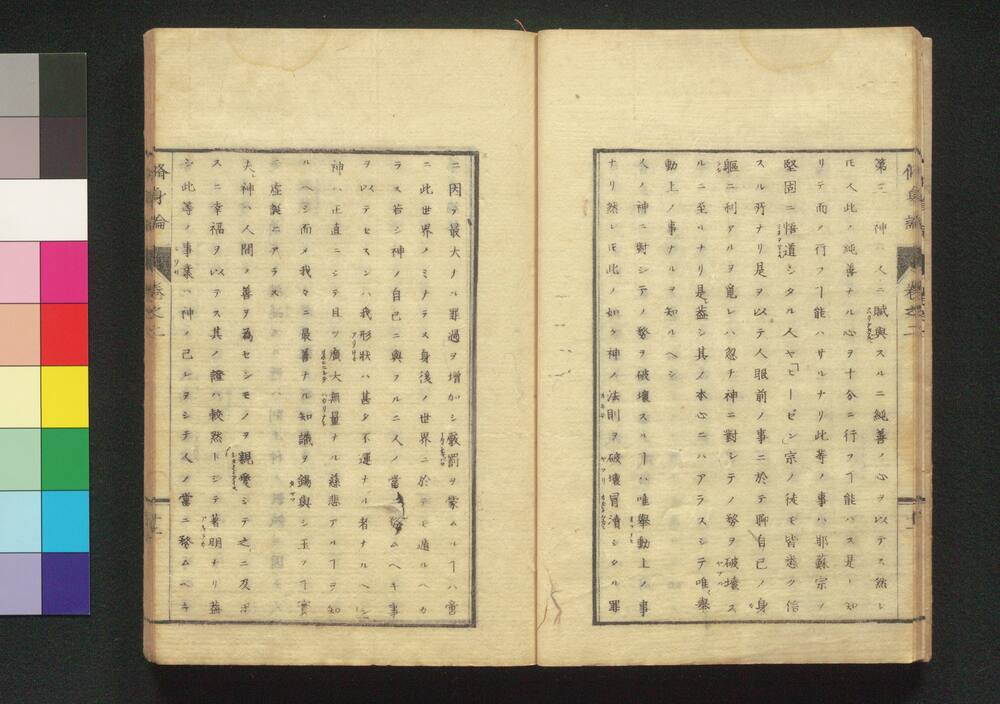 修身論 巻之二
第三 神ハ人ニ賦與スルニ純善ノ心ヲ以テス然レ
スリアタヘ
𪜈人此ノ純善ナル心ヲ十分ニ行フヿ能ハス是レ知
リテ而メ行フヿ能ハサルナリ此等ノ事ハ耶蘇宗ノ
堅固ニ悟道シタル人ヤ「ヒーゼン」宗ノ徒モ皆悉ク信
スル所ナリ是ヲ以テ人眼前ノ事ニ於テ聊自己ノ身
軀ニ利アルヲ覓レハ忽チ神ニ對シテノ務ヲ破壊ス
ルニ至ルナリ是蓋シ其ノ本心ニハアラスシテ唯擧
動上ノ事ナルヲ知ルヘシ
人ノ神ニ對シテノ務ヲ破壊スルヿハ唯擧動上ノ事
ナリ然レ𪜈此ノ如ク神ノ法則ヲ破壊冒瀆シタル罪
ニ因テ最大ナル罪過ヲ増加シ嚴罰ヲ蒙ムルヿハ啻
ニ此世界ノミナラス身後ノ世界ニ於テモ遁ルヘカ
ラス若シ神ノ自己ニ與フルニ人ノ當ニ務ムヘキ事
ヲ以テセスンハ我形状ハ甚タ不運ナル者ナルヘシ
アリサマ
神ハ正直ニシテ且ツ廣大無量ナル慈悲アルヿヲ知
ルヘシ而メ我々ニ最善ナル知識ヲ錫與シ玉フヿ實
タマヘ
ニ虚誕ニアラス
夫神ハ人間ノ善ヲ為セシモノヲ親愛シテ之ニ及ホ
スニ幸福ヲ以テス其ノ證ハ較然トシテ著明ナリ蓋
シ此等ノ事裏ハ神ノ己レヲシテ人ノ當ニ務ムヘキ
修身論 巻之二